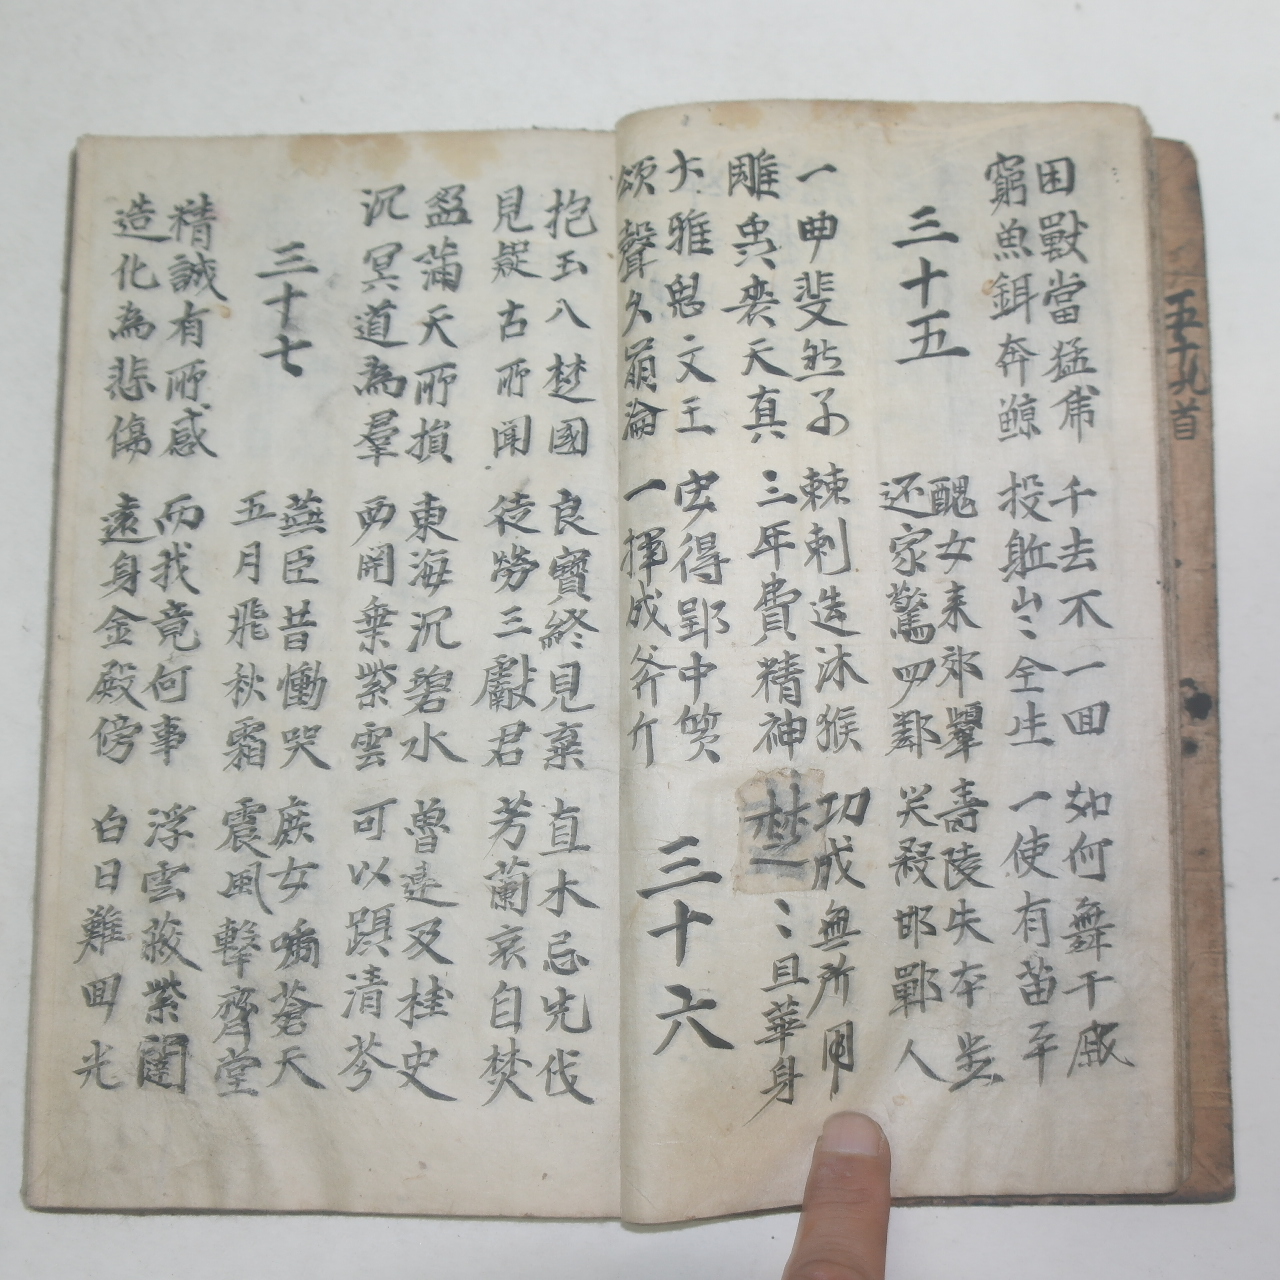 困獸當猛虎
窮魚餌奔鯨
千去不一回
投軀豈全生
如何舞干戚
一使有苗平
三十五
醜女来郊顰
还家驚四鄰
壽陵失本步
笑殺邯鄲人
一曲斐然子
雕虫喪天真
棘刺造沐猴
三年費精神
功成無所用
楚〻且華身
大雅思文王
頌聲久崩淪
安得郢中質
一揮成斧斤
三十六
抱玉入楚國
見疑古所聞
良寶終見棄
徒勞三獻君
直木忌先伐
芳蘭哀自焚
盈滿天所損
沉冥道為羣
東海沉碧水
西関乗紫雲
魯連及柱史
可以躡清芬
三十七
燕臣昔慟哭
五月飛秋霜
庶女號蒼天
震風擊齊堂
精誠有所感
造化為悲傷
而我竟何事
遠身金殿傍
浮雲蔽紫闥
白日難回光
五十九首